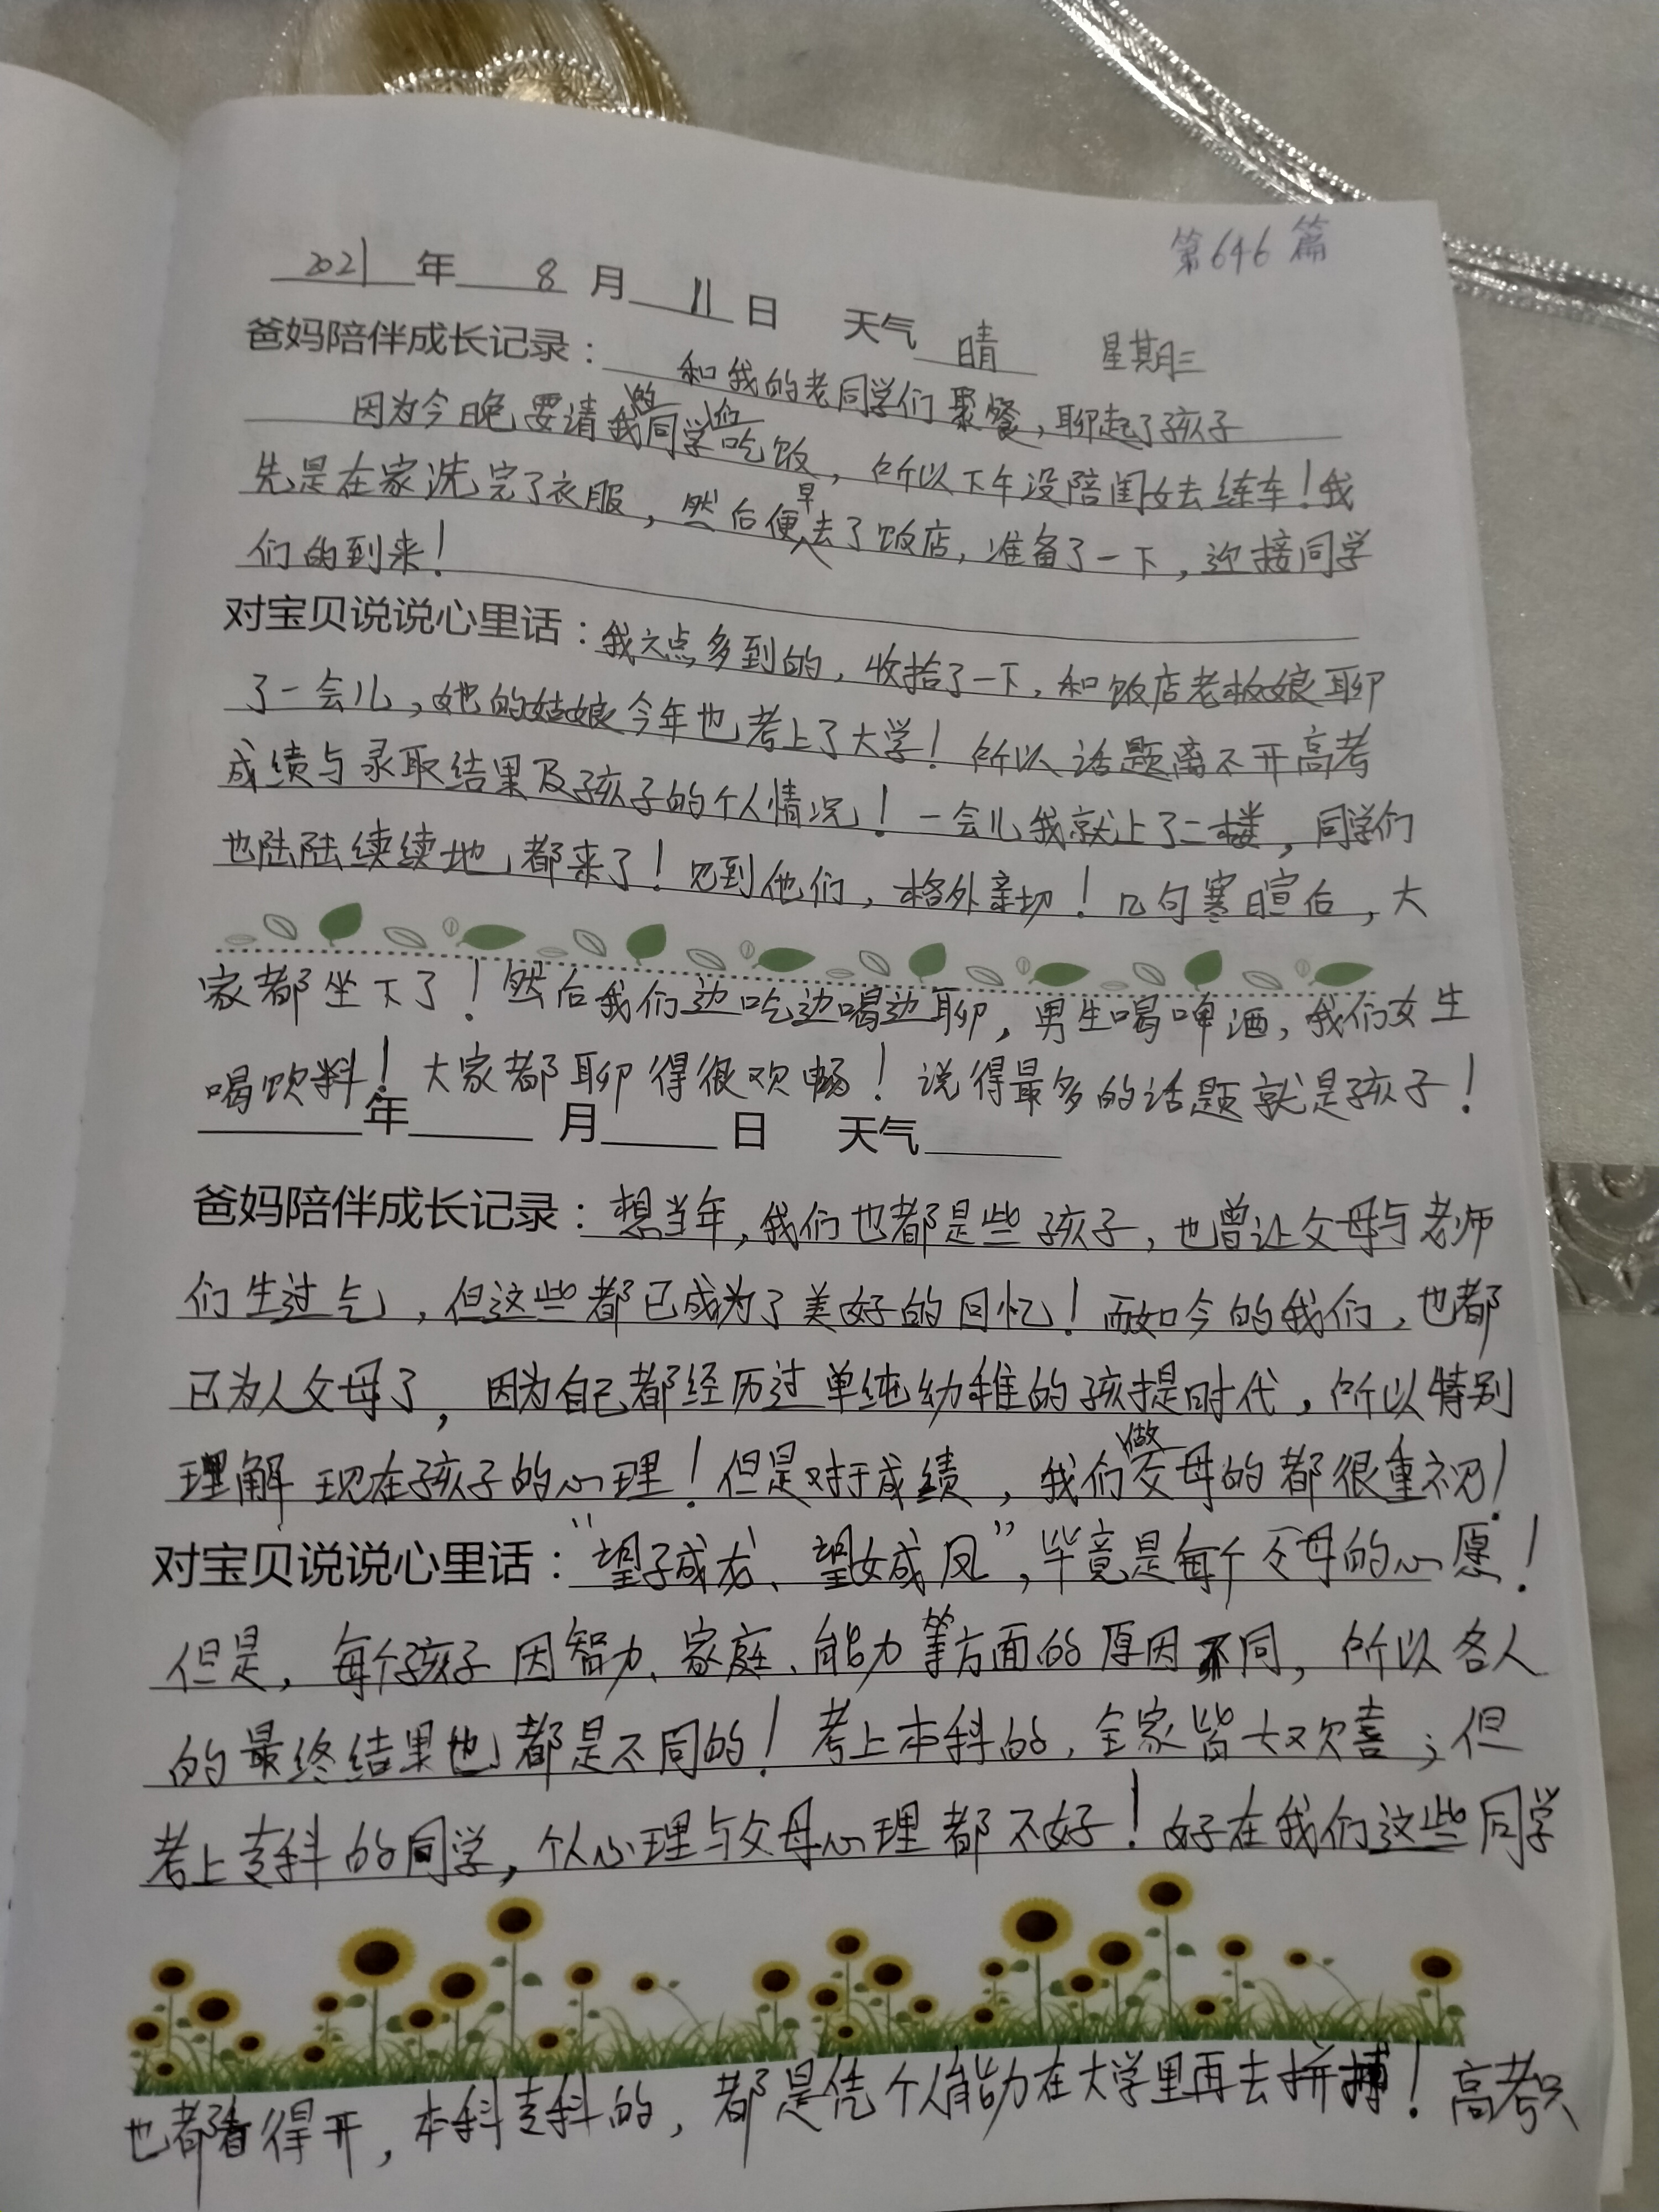 第646篇
2021年8月11日 天气晴 星期三
爸妈陪伴成长记录：和我的老同学们聚餐，聊起了孩子
因为今晚要请我的同学们吃饭，所以下午没陪闺女去练车！我
先是在家洗完了衣服，然后便早去了饭店，准备了一下，迎接同学
们的到来！
对宝贝说说心里话：我六点多到的，收拾了一下，和饭店老板娘聊
了一会儿，她的姑娘今年也考上了大学！所以话题离不开高考
成绩与录取结果及孩子的个人情况！一会儿我就上了二楼，同学们
也陆陆续续地都来了！见到他们，格外亲切！几句寒暄后，大
家都坐下了！然后我们边吃边喝边聊，男生喝啤酒，我们女生
喝饮料！大家都聊得很欢畅！说得最多的话题就是孩子！
年 月 日 天气
爸妈陪伴成长记录：想当年，我们也都是些孩子，也曾让父母与老师
们生过气，但这些都已成为了美好的回忆！而如今的我们，也都
已为人父母了，因为自己都经历过单纯幼稚的孩提时代，所以特别
理解现在孩子的心理！但是对于成绩，我们做父母的都很重视！
对宝贝说说心里话：“望子成龙、望女成凤”，毕竟是每个父母的心愿！
但是，每个孩子因智力、家庭、能力等方面的原因不同，所以各人
的最终结果也都是不同的！考上本科的，全家皆大欢喜；但
考上专科的同学，个人心理与父母心理都不好！好在我们这些同学
也都看得开，本科专科的，都是凭个人能力在大学里再去拼搏！高考只